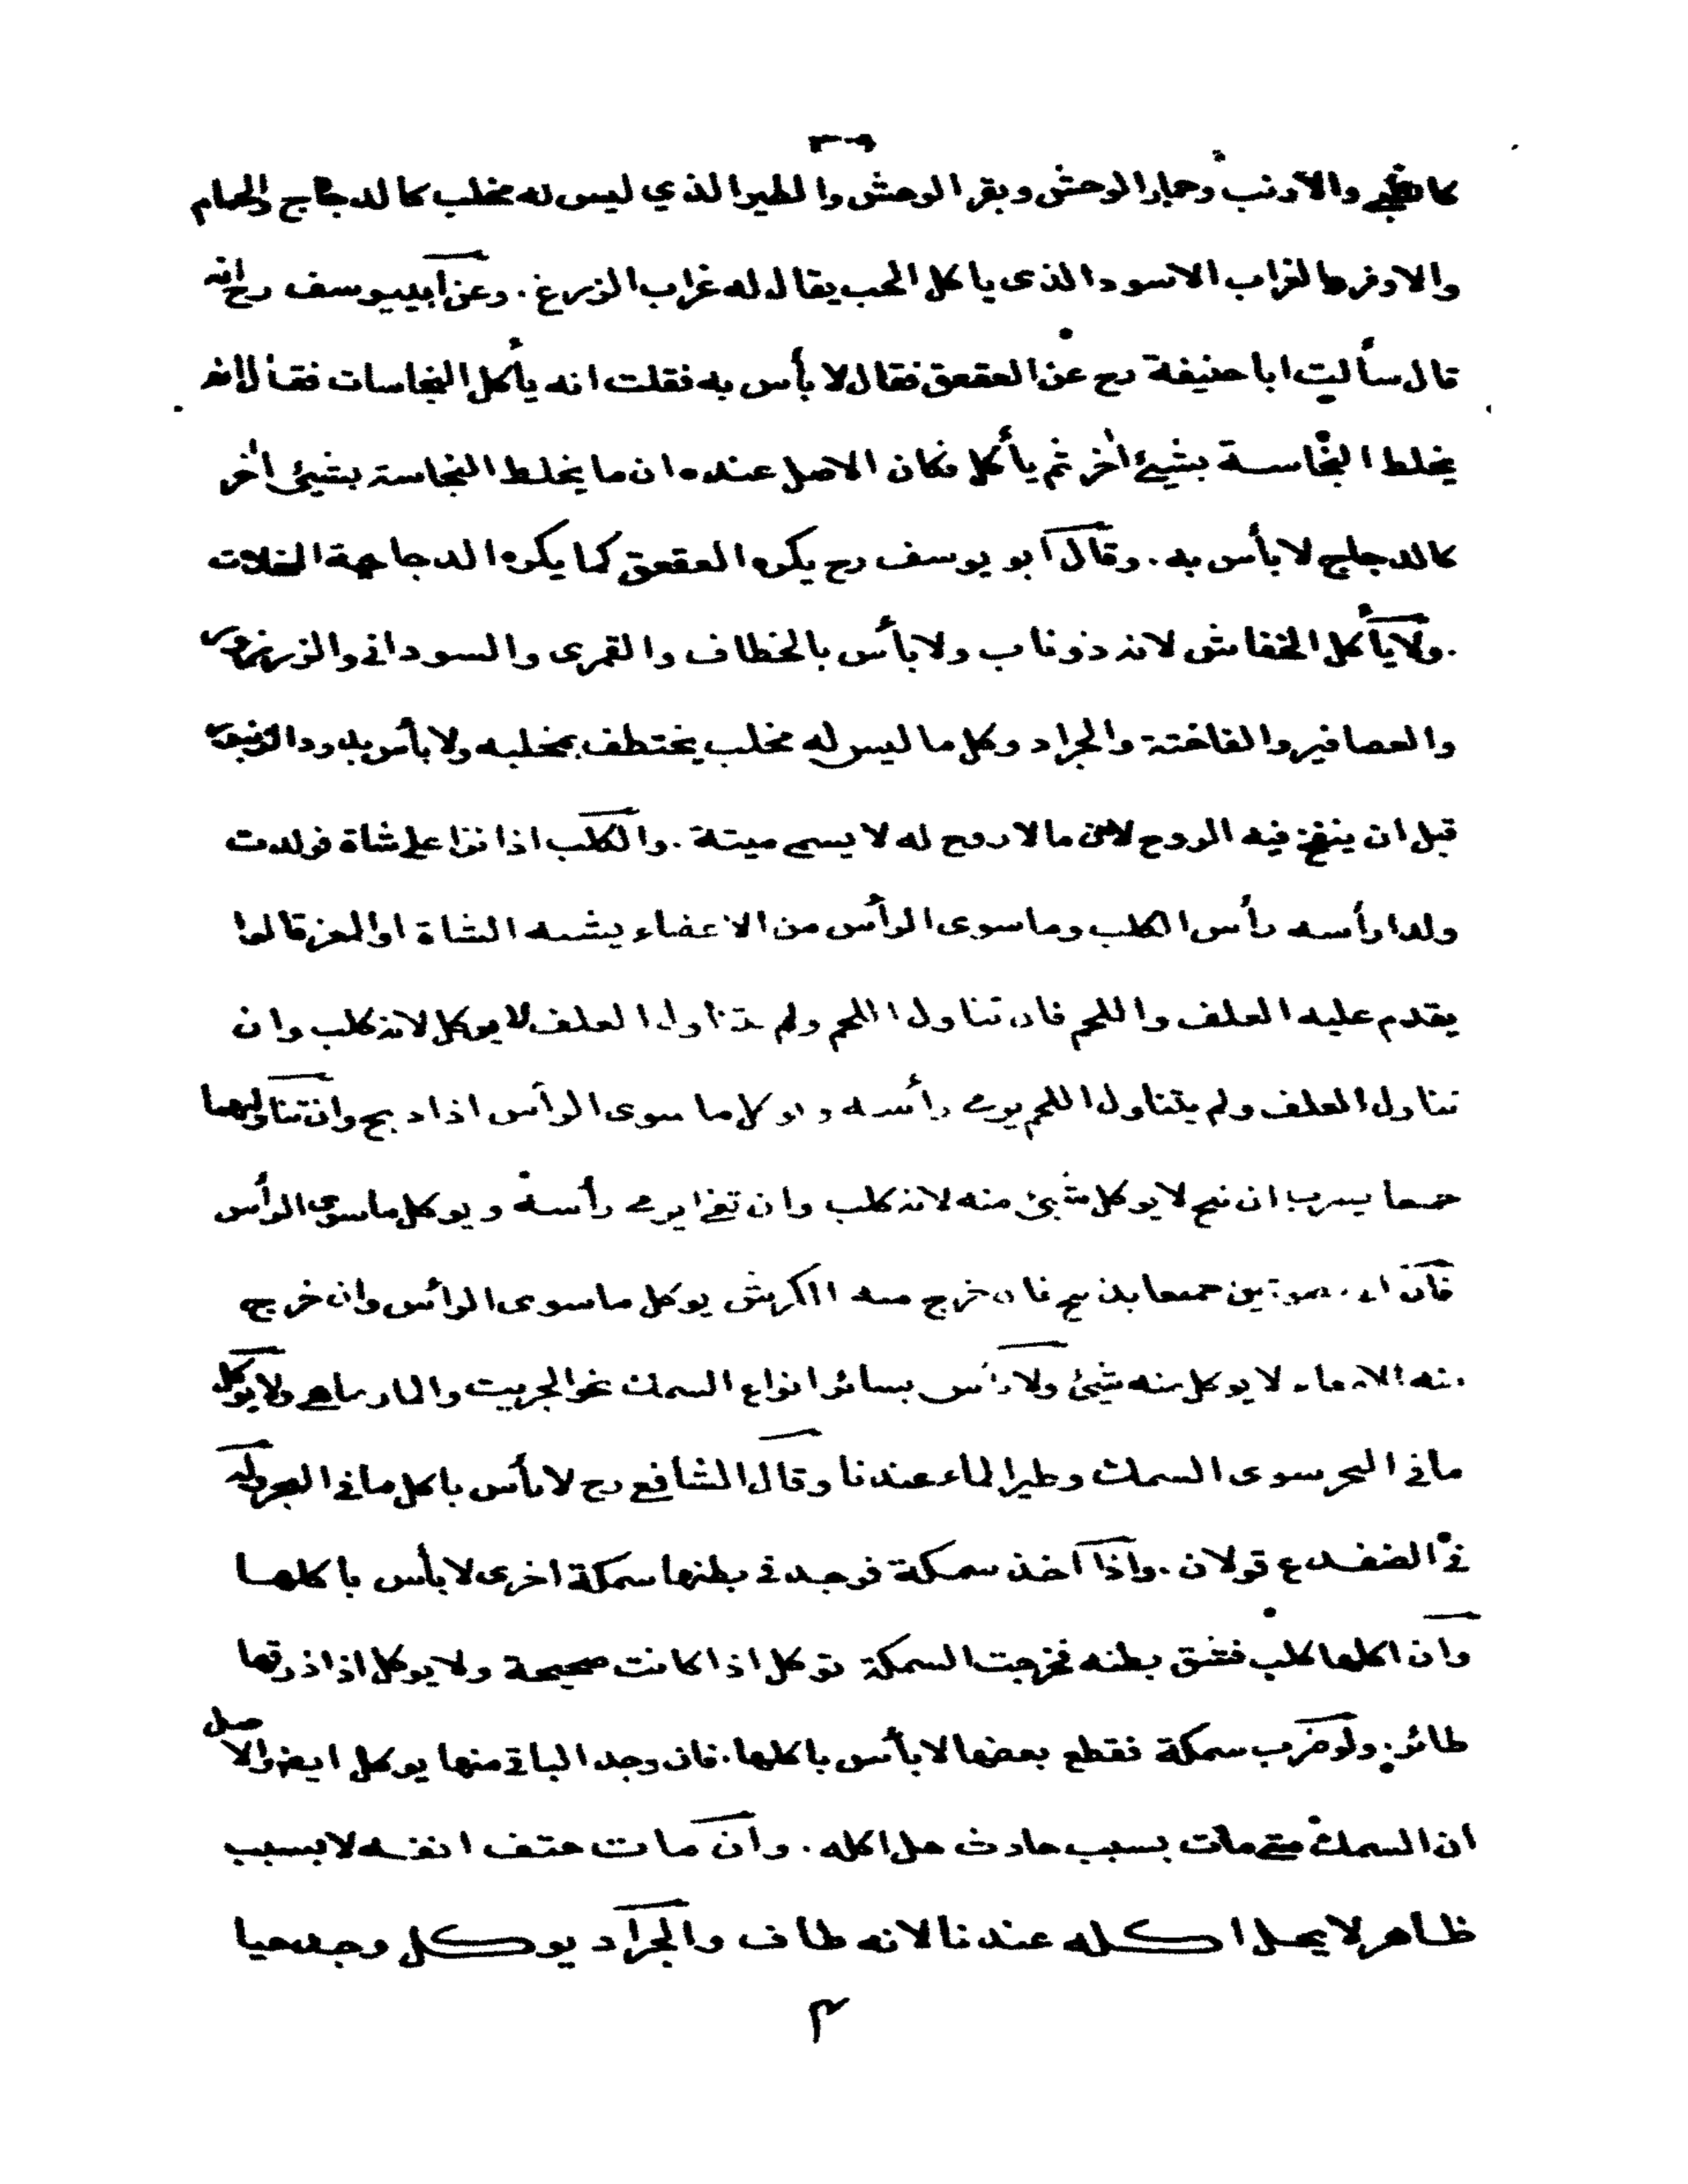 كالظبي والأرنب وحمار الوحش وبقر الوحش والطير الذي ليس له مخلب كالدجاج والحمام
والاوز والغراب الاسود الذى ياكل الحب يقال له غراب الزرع . وعن ابي يوسف رح انه
قال سألت ابا حنيفة رح عن العقعق فقال لا بأس به فقلت انه يأكل النجاسات فقال انه
يخلط النجاسة بشيئ اٰخر ثم يأكل فكان الاصل عنده ان ما يخلط النجاسة بشيئ اٰخر
كالدجاج لا بأس به . وقال ابو يوسف رح يكره العقعق كما يكره الدجاجة المخلات
. ولا يأكل الخفاش لانه ذو ناب ولا بأس بالخطاف والقمرى والسودانى والزرزور
والعصافير والفاختة والجراد وكل ما ليس له مخلب يختطف بمخلبه ولا بأس بدود الزنبور
قبل ان ينفخ فيه الروح لان ما لا روح له لا يسمى ميتة . والكلب اذا نزا على شاة فولدت
ولدا رأسه رأس الكلب وما سوى الرأس من الاعضاء يشبه الشاة او المعز قالوا
يقدم عليه العلف واللحم فان تناول اللحم ولم يتناول العلف لا يوكل لانه كلب وان
تناول العلف ولم يتناول اللحم يرمى رأسه ويوكل ما سوى الرأس اذا ذبح وان تناولهما
جميعا يضرب ان نبح لا يوكل شيئ منه لانه كلب وان ثغا يرمى رأسه ويوكل ما سوى الرأس
فان بصوتين جميعا يذبح فان خرج منه الكرش يوكل ما سوى الرأس وان خرج
منه الامعاء لا يوكل منه شيئ ولا بأس بسائر انواع السمك نحو الجريت والمارماهى ولا يوكل
ما فى البحر سوى السمك وطير الماء عندنا وقال الشافعى رح لا بأس باكل ما فى البحر وله
فى الضفدع قولان . واذا اخذ سمكة فوجد فى بطنها سمكة اخرى لا بأس باكلها
وان اكلها كلب فشق بطنه فخرجت السمكة توكل اذا كانت صحيحة ولا يوكل اذا ذرقها
طائر . ولو ضرب سمكة فقطع بعضها لا بأس باكلها . فان وجد الباقى منها يوكل ايض والاصل
ان السمك متى مات بسبب حادث حل اكله . وان مات حتف انفه لا بسبب
ظاهر لا يحل اكله عندنا لانه طاف والجراد يوكل وجد حيا
م